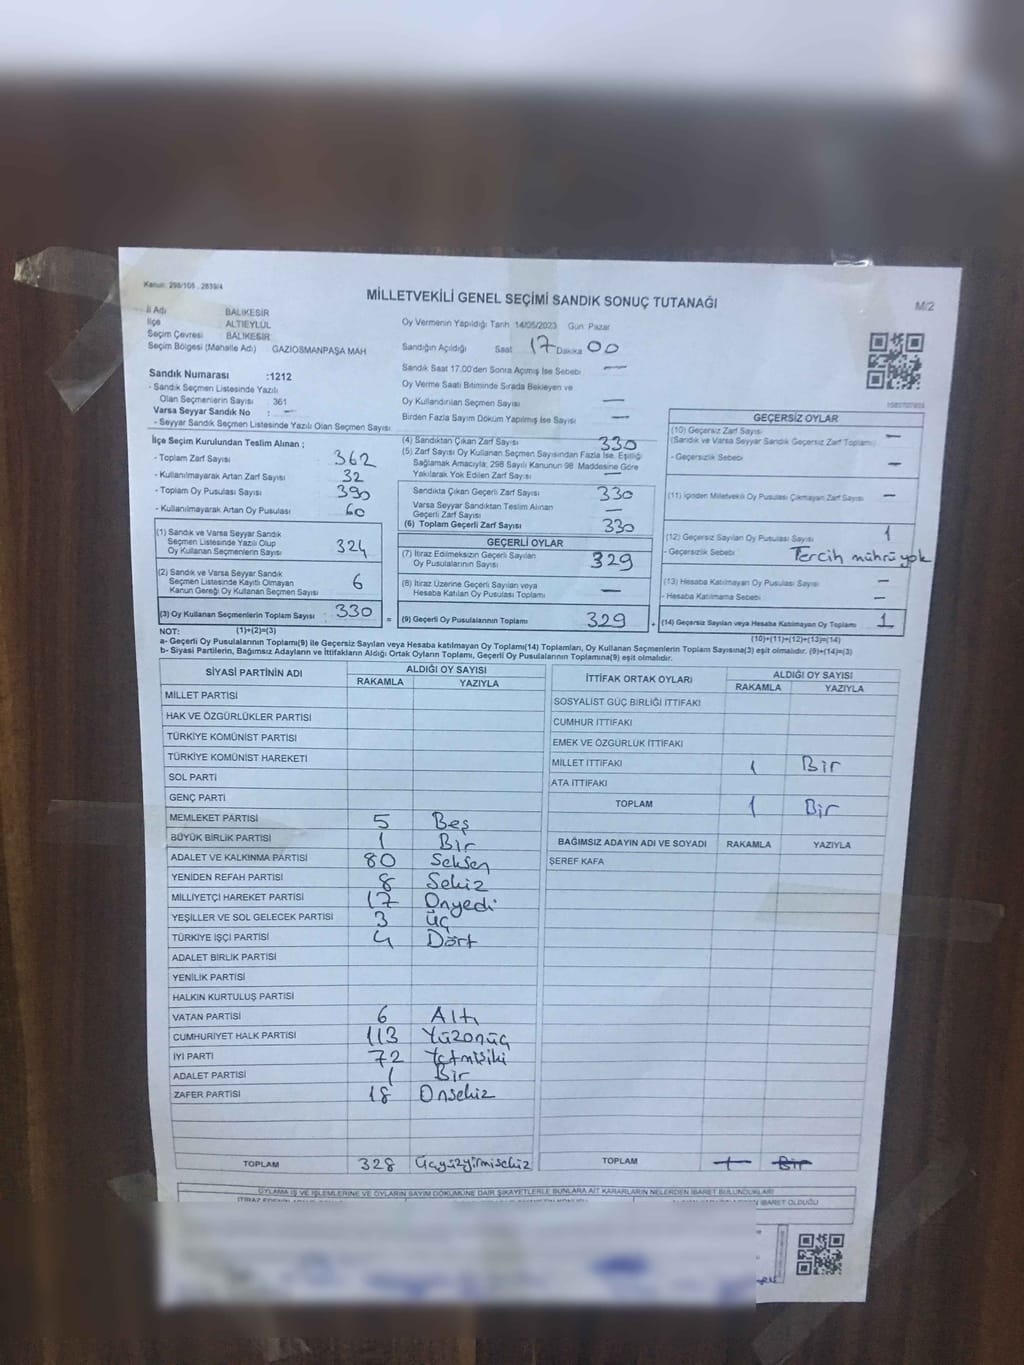 Kanun: 298/105 , 2839/4
MİLLETVEKİLİ GENEL SEÇİMİ SANDIK SONUÇ TUTANAĞI
M/2
İl Adı BALIKESİR
İlçe ALTIEYLÜL
Seçim Çevresi BALIKESİR
Seçim Bölgesi (Mahalle Adı) GAZİOSMANPAŞA MAH
Oy Vermenin Yapıldığı Tarih 14/05/2023 Gün: Pazar
Sandığın Açıldığı Saat 17 Dakika 00
Sandık Saat 17.00'den Sonra Açılmış İse Sebebi —
Oy Verme Saati Bitiminde Sırada Bekleyen ve
Oy Kullandırılan Seçmen Sayısı —
Birden Fazla Sayım Döküm Yapılmış İse Sayısı —
Sandık Numarası :1212
- Sandık Seçmen Listesinde Yazılı
Olan Seçmenlerin Sayısı 361
Varsa Seyyar Sandık No : —
- Seyyar Sandık Seçmen Listesinde Yazılı Olan Seçmen Sayısı
İlçe Seçim Kurulundan Teslim Alınan ;
- Toplam Zarf Sayısı 362
- Kullanılmayarak Artan Zarf Sayısı 32
- Toplam Oy Pusulası Sayısı 390
- Kullanılmayarak Artan Oy Pusulası 60
(1) Sandık ve Varsa Seyyar Sandık
Seçmen Listesinde Yazılı Olup
Oy Kullanan Seçmenlerin Sayısı 324
(2) Sandık ve Varsa Seyyar Sandık
Seçmen Listesinde Kayıtlı Olmayan
Kanun Gereği Oy Kullanan Seçmen Sayısı 6
(3) Oy Kullanan Seçmenlerin Toplam Sayısı 330
(4) Sandıktan Çıkan Zarf Sayısı 330
(5) Zarf Sayısı Oy Kullanan Seçmen Sayısından Fazla İse, Eşitliği
Sağlamak Amacıyla; 298 Sayılı Kanunun 98. Maddesine Göre
Yakılarak Yok Edilen Zarf Sayısı —
Sandıkta Çıkan Geçerli Zarf Sayısı 330
Varsa Seyyar Sandıktan Teslim Alınan
Geçerli Zarf Sayısı —
(6) Toplam Geçerli Zarf Sayısı 330
GEÇERLİ OYLAR
(7) İtiraz Edilmeksizin Geçerli Sayılan
Oy Pusulalarının Sayısı 329
(8) İtiraz Üzerine Geçerli Sayılan veya
Hesaba Katılan Oy Pusulası Toplamı —
= (9) Geçerli Oy Pusulalarının Toplamı 329 +
GEÇERSİZ OYLAR
(10) Geçersiz Zarf Sayısı
(Sandık ve Varsa Seyyar Sandık Geçersiz Zarf Toplamı) —
- Geçersizlik Sebebi —
(11) İçinden Milletvekili Oy Pusulası Çıkmayan Zarf Sayısı —
(12) Geçersiz Sayılan Oy Pusulası Sayısı 1
- Geçersizlik Sebebi Tercih mührü yok
(13) Hesaba Katılmayan Oy Pusulası Sayısı —
- Hesaba Katılmama Sebebi —
(14) Geçersiz Sayılan veya Hesaba Katılmayan Oy Toplamı 1
NOT: (1)+(2)=(3)
(10)+(11)+(12)+(13)=(14)
a- Geçerli Oy Pusulalarının Toplamı(9) ile Geçersiz Sayılan veya Hesaba katılmayan Oy Toplamı(14) Toplamları, Oy Kullanan Seçmenlerin Toplam Sayısına(3) eşit olmalıdır. (9)+(14)=(3)
b- Siyasi Partilerin, Bağımsız Adayların ve İttifakların Aldığı Oyların Toplamı, Geçerli Oy Pusulalarının Toplamına(9) eşit olmalıdır.
SİYASİ PARTİNİN ADI ALDIĞI OY SAYISI
RAKAMLA YAZIYLA
MİLLET PARTİSİ
HAK VE ÖZGÜRLÜKLER PARTİSİ
TÜRKİYE KOMÜNİST PARTİSİ
TÜRKİYE KOMÜNİST HAREKETİ
SOL PARTİ
GENÇ PARTİ
MEMLEKET PARTİSİ 5 Beş
BÜYÜK BİRLİK PARTİSİ 1 Bir
ADALET VE KALKINMA PARTİSİ 80 Seksen
YENİDEN REFAH PARTİSİ 8 Sekiz
MİLLİYETÇİ HAREKET PARTİSİ 17 Onyedi
YEŞİLLER VE SOL GELECEK PARTİSİ 3 Üç
TÜRKİYE İŞÇİ PARTİSİ 4 Dört
ADALET BİRLİK PARTİSİ
YENİLİK PARTİSİ
HALKIN KURTULUŞ PARTİSİ
VATAN PARTİSİ 6 Altı
CUMHURİYET HALK PARTİSİ 113 Yüzonüç
İYİ PARTİ 72 Yetmişiki
ADALET PARTİSİ 1 Bir
ZAFER PARTİSİ 18 Onsekiz
TOPLAM 328 Üçyüzyirmisekiz
İTTİFAK ORTAK OYLARI ALDIĞI OY SAYISI
RAKAMLA YAZIYLA
SOSYALİST GÜÇ BİRLİĞİ İTTİFAKI
CUMHUR İTTİFAKI
EMEK VE ÖZGÜRLÜK İTTİFAKI
MİLLET İTTİFAKI 1 Bir
ATA İTTİFAKI
TOPLAM 1 Bir
BAĞIMSIZ ADAYIN ADI VE SOYADI RAKAMLA YAZIYLA
ŞEREF KAFA
TOPLAM 1 Bir
OYLAMA İŞ VE İŞLEMLERİNE VE OYLARIN SAYIM DÖKÜMÜNE DAİR ŞİKAYETLERLE BUNLARA AİT KARARLARIN NELERDEN İBARET BULUNDUKLARI